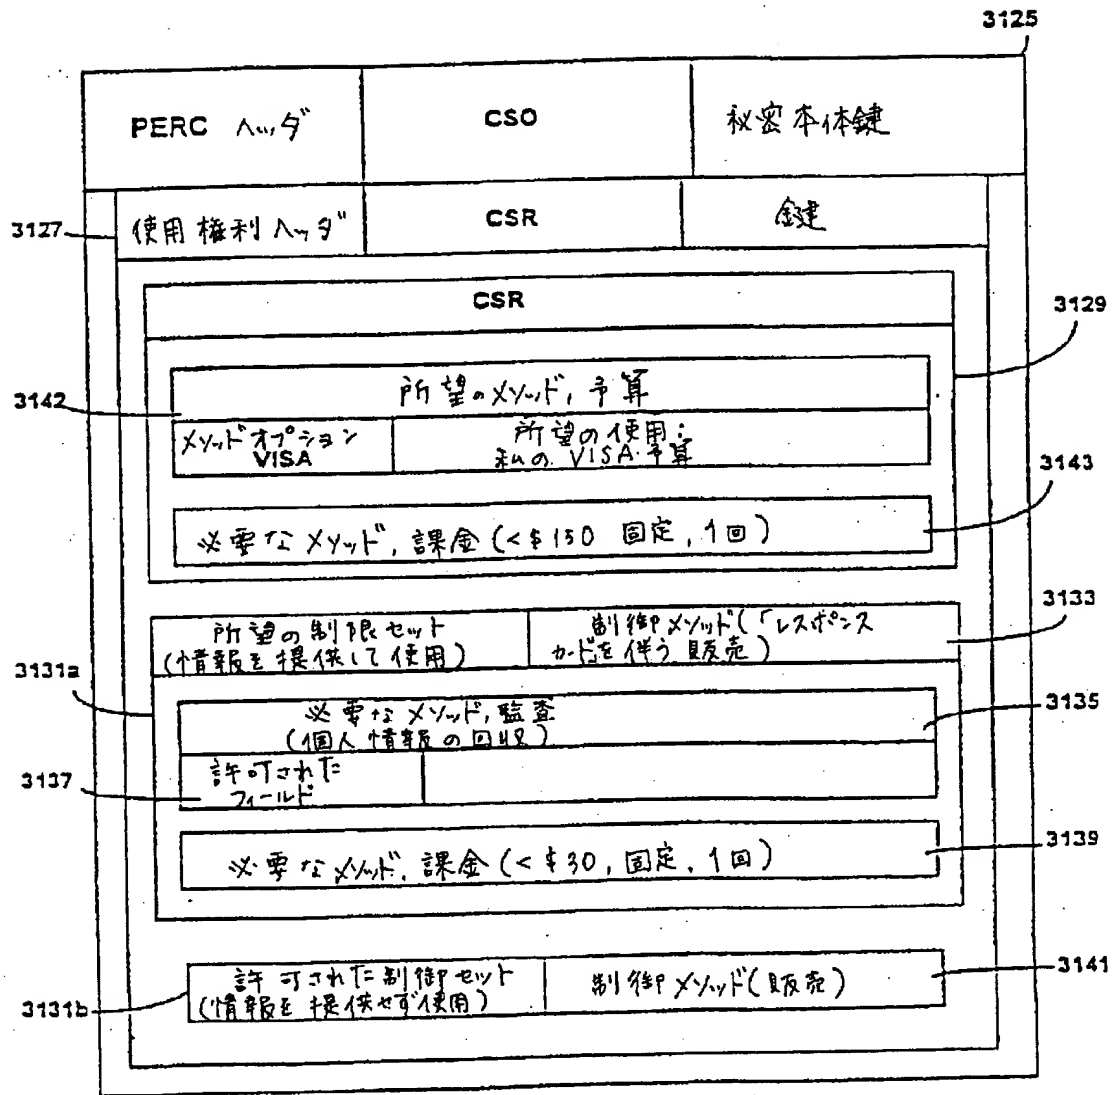 3125
PERC ヘッダ
CSO
秘密本体鍵
3127
使用権利ヘッダ
CSR
鍵
CSR
3129
所望のメソッド, 予算
3142
メソッドオプション
VISA
所望の使用:
私の VISA 予算
3143
必要なメソッド, 課金 (<$150 固定, 1回)
所望の制限セット
(情報を提供して使用)
制御メソッド(「レスポンス
カード」を伴う販売)
3133
3131a
必要なメソッド, 監査
(個人情報の回収)
3135
3137
許可された
フィールド
必要なメソッド, 課金 (<$30, 固定, 1回)
3139
許可された制御セット
(情報を提供せず使用)
制御メソッド(販売)
3141
3131b